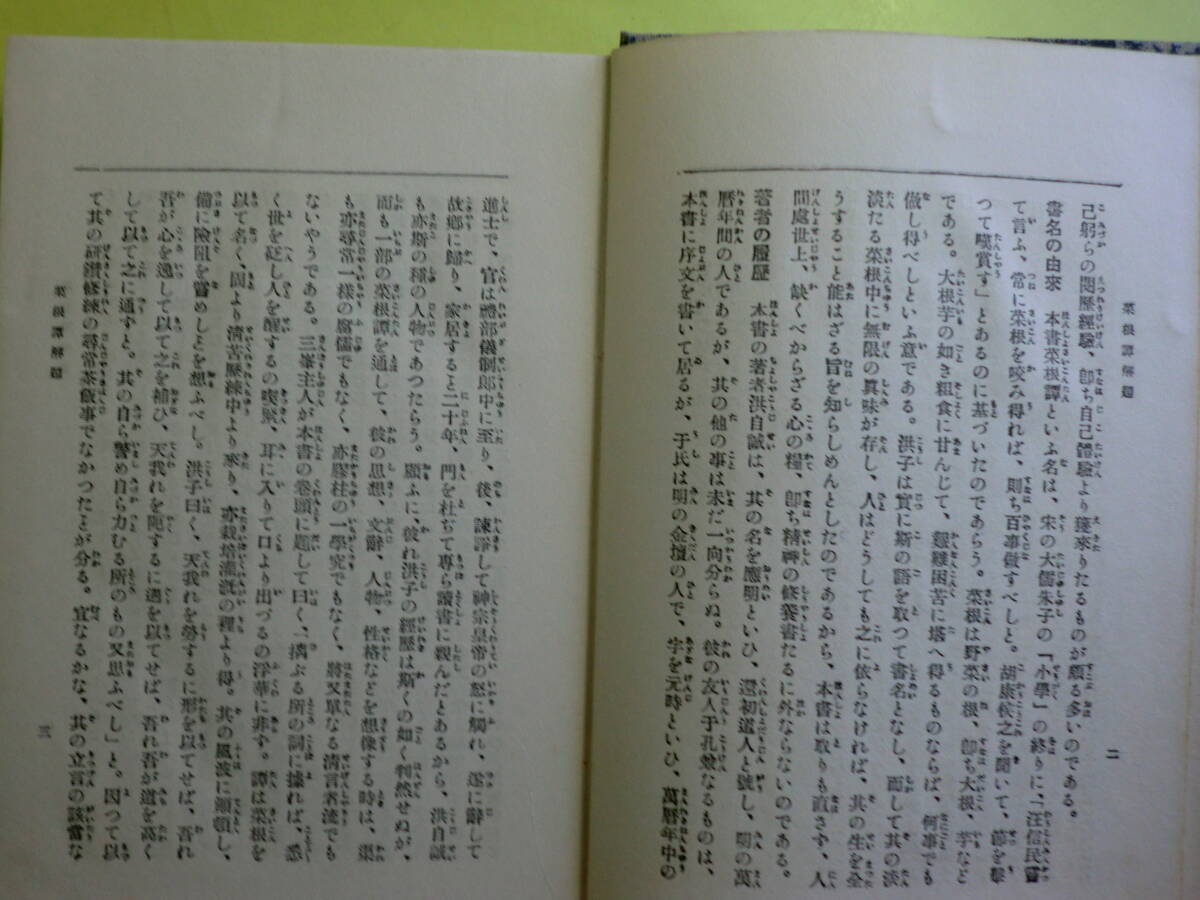 菜根譚解題
二
己躬らの閱歷經驗、卽ち自己體驗より獲來りたるものが頗る多いのである。
書名の由來 本書菜根譚といふ名は、宋の大儒朱子の『小學』の終りに、「汪信民嘗
て言ふ、常に菜根を咬み得れば、則ち百事做すべしと。胡康侯之を聞いて、節を擊
つて嘆賞す」とあるのに基づいたのであらう。菜根は野菜の根、卽ち大根、芋など
である。大根芋の如き粗食に甘んじて、艱難困苦に堪へ得るものならば、何事でも
做し得べしといふ意である。洪子は實に斯の語を取つて書名となし、而して其の淡
淡たる菜根中に無限の眞味が存し、人はどうしても之に依らなければ、其の生を全
うすること能はざる旨を知らしめんとしたのであるから、本書は取りも直さず、人
間處世上、缺くべからざる心の糧、卽ち精神の修養書たるに外ならないのである。
著者の履歷 本書の著者洪自誠は、其の名を應明といひ、還初道人と號し、明の萬
曆年間の人であるが、其の他の事は未だ一向分らぬ。彼の友人于孔兼なるものは、
本書に序文を書いて居るが、于氏は明の金壇の人で、字を元時といひ、萬曆年中の
進士で、官は禮部儀制郎中に至り、後、諫諍して神宗皇帝の怒に觸れ、遂に辭して
故鄕に歸り、家居すると二十年、門を杜ぢて專ら讀書に親んだとあるから、洪自誠
も亦斯の種の人物であつたらう。顧ふに、彼れ洪子の經歷は斯くの如く判然せぬが、
而も一部の菜根譚を通して、彼の思想、文辭、人物、性格などを想像する時は、渠
も亦尋常一樣の腐儒でもなく、亦膠柱の一學究でもなく、將又單なる淸言者流でも
ないやうである。三峯主人が本書の卷頭に題して曰く、「擕ぶる所の詞に據れば、悉
く世を砭し人を醒するの喫緊、耳に入りて口より出づるの浮華に非ず。譚は菜根を
以て名く、固より淸苦歷練中より來り、亦栽培灌漑の裡より得。其の風波に顚頓し、
備に險阻を嘗めしとを想ふべし。洪子曰く、天我れを勞するに形を以てせば、吾れ
吾が心を逸して以て之を補ひ、天我れを阨するに遇を以てせば、吾れ吾が道を高く
して以て之に通ずと。其の自ら警め自ら力むる所のもの又思ふべし」と。因つて以
て其の硏鑽修練の尋常茶飯事でなかつたとが分る。宜なるかな、其の立言の該當な
菜根譚解題
三